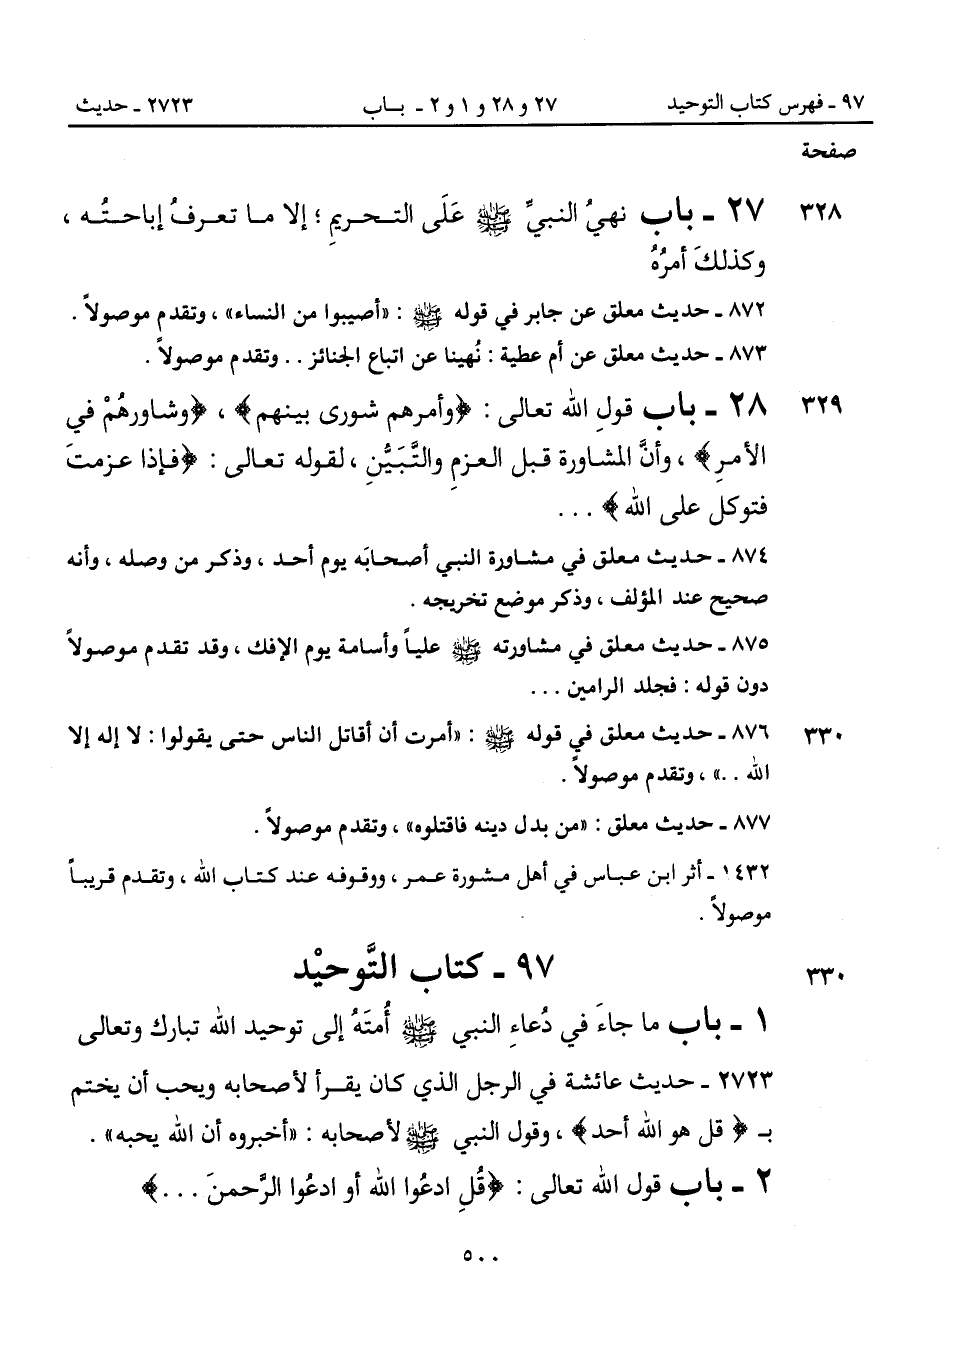 ٩٧ ـ فهرس كتاب التوحيد ٢٧ و ٢٨ و ١ و ٢ ـ بـاب ٢٧٢٣ ـ حديث
صفحة
٣٢٨ ٢٧ ـ باب نهيُ النبيِّ ﷺ عَلَى التـحـريمِ ؛ إلا مـا تعـرفُ إباحـتُـه ،
وكذلكَ أمرُهُ
٨٧٢ ـ حديث معلق عن جابر في قوله ﷺ : «أصيبوا من النساء» ، وتقدم موصولاً .
٨٧٣ ـ حديث معلق عن أم عطية : نُهينا عن اتباع الجنائز . . وتقدم موصولاً .
٣٢٩ ٢٨ ـ باب قولِ الله تعالى : ﴿وأمرهم شورى بينهم﴾ ، ﴿وشاورهُمْ في
الأمرِ﴾ ، وأنَّ المشاورة قبل العزمِ والتَّبَيُّنِ ، لقوله تعالى : ﴿فإذا عزمتَ
فتوكل على الله﴾ . . .
٨٧٤ ـ حديث معلق في مشاورة النبي أصحابَه يوم أحد ، وذكر من وصله ، وأنه
صحيح عند المؤلف ، وذكر موضع تخريجه .
٨٧٥ ـ حديث معلق في مشاورته ﷺ علياً وأسامة يوم الإفك ، وقد تقدم موصولاً
دون قوله : فجلد الرامين . . .
٣٣٠ ٨٧٦ ـ حديث معلق في قوله ﷺ : «أمرت أن أقاتل الناس حتى يقولوا : لا إله إلا
الله . .» ، وتقدم موصولاً .
٨٧٧ ـ حديث معلق : «من بدل دينه فاقتلوه» ، وتقدم موصولاً .
١٤٣٢ ـ أثر ابن عباس في أهل مشورة عمر ، ووقوفه عند كتاب الله ، وتقدم قريباً
موصولاً .
٣٣٠ ٩٧ ـ كتاب التَّوحيْد
١ ـ باب ما جاءَ في دُعاءِ النبي ﷺ أُمتَهُ إلى توحيد الله تبارك وتعالى
٢٧٢٣ ـ حديث عائشة في الرجل الذي كان يقرأ لأصحابه ويحب أن يختم
بـ ﴿ قل هو الله أحد﴾ ، وقول النبي ﷺ لأصحابه : «أخبروه أن الله يحبه» .
٢ ـ باب قول الله تعالى : ﴿قُلِ ادعُوا الله أو ادعُوا الرَّحمنَ . . .﴾
٥٠٠